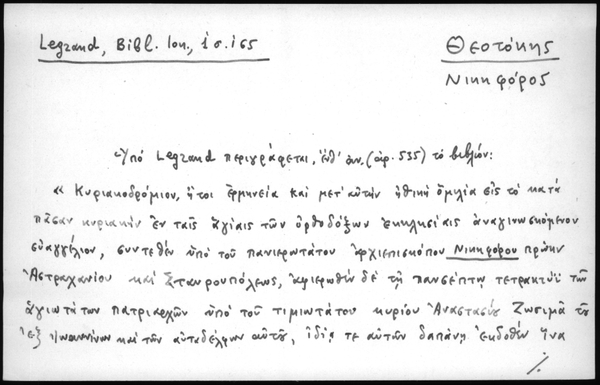 Legrand, Bibl. Ion., ἱ σ. 165
Θεοτόκης
Νικηφόρος
Ὑπό Legrand περιγράφεται, ἔνθ' ἀν. (ἀρ. 535) τό βιβλίον:
« Κυριακοδρόμιον, ἤτοι ἑρμηνεία καί μετ' αὐτήν ἠθική ὁμιλία εἰς τό κατά
πᾶσαν κυριακήν ἐν ταῖς ἁγίαις τῶν ὀρθοδόξων ἐκκλησίαις ἀναγινωσκόμενον
εὐαγγέλιον, συντεθέν ὑπό τοῦ πανιερωτάτου ἀρχιεπισκόπου Νικηφόρου πρώην
Ἀστραχανίου καί Σταυρουπόλεως, ἀφιερωθέν δέ τῇ πανσέπτῳ τετρακτύϊ τῶν
ἁγιωτάτων πατριαρχῶν ὑπό τοῦ τιμιωτάτου κυρίου Ἀναστασίου Ζωσιμᾶ τοῦ
ἐξ Ἰωαννίνων καί τῶν αὐταδέλφων αὐτοῦ, ἰδίᾳ τε αὐτῶν δαπάνῃ ἐκδοθέν ἵνα
./.